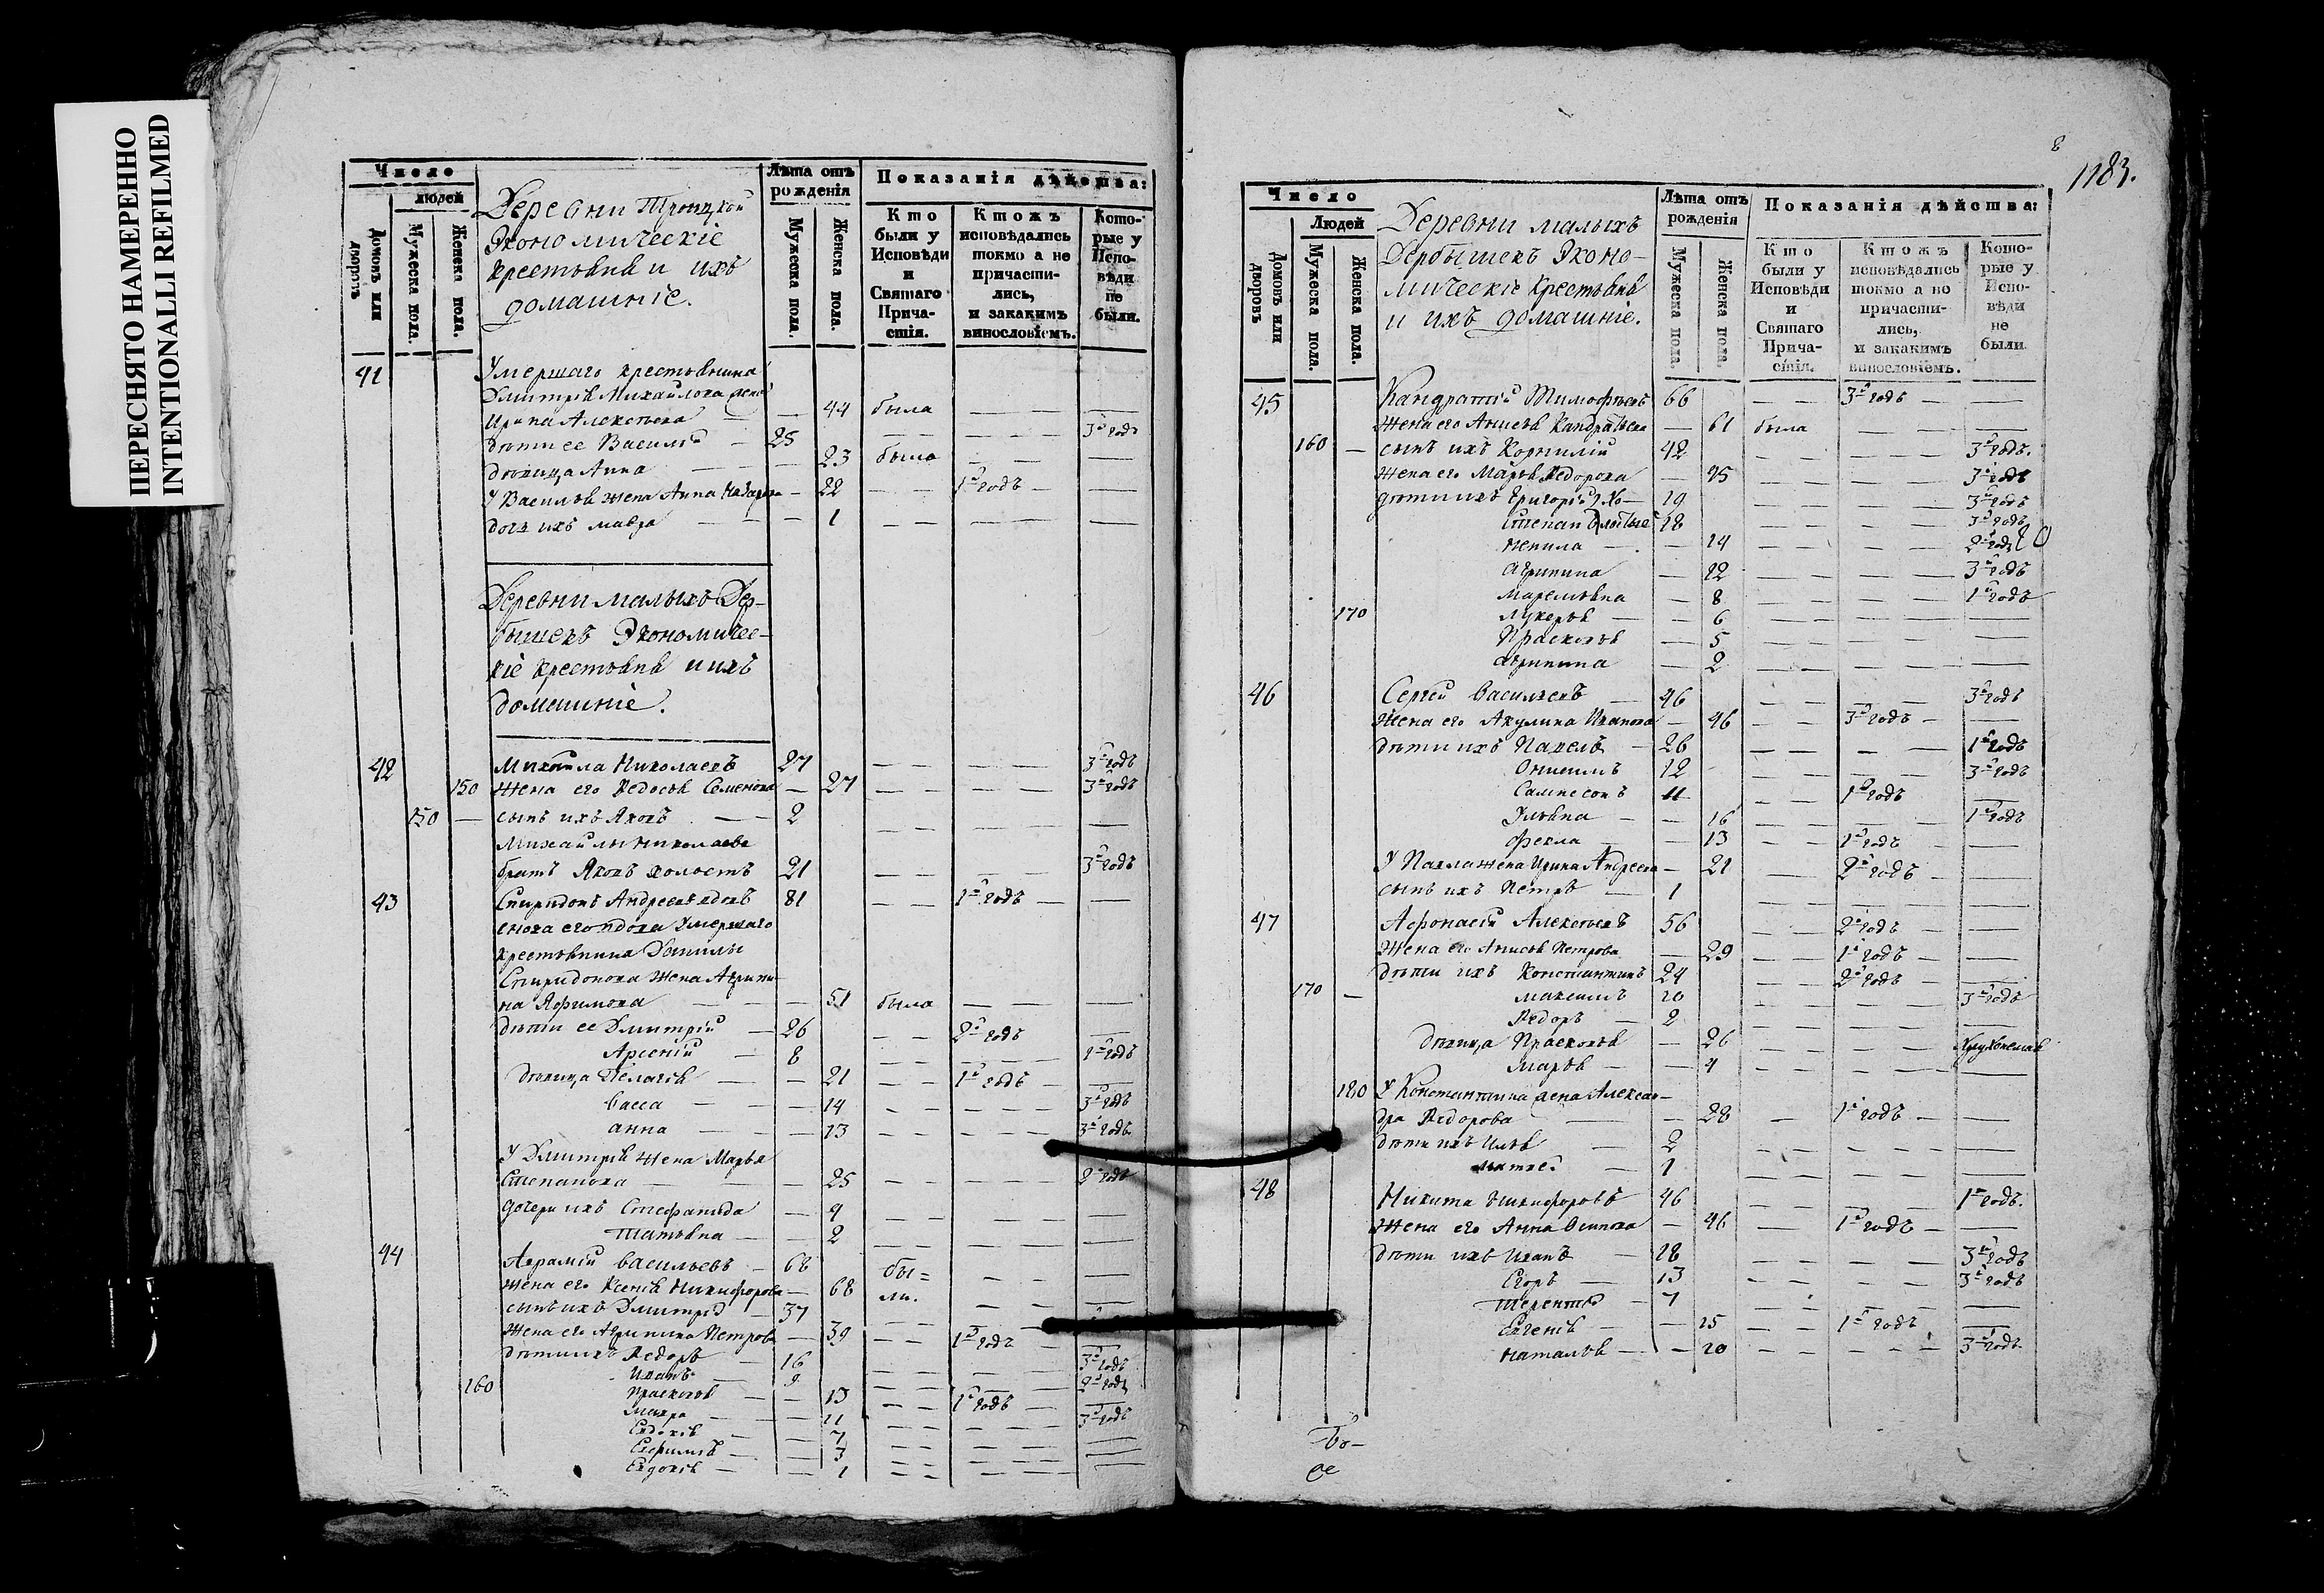 ПЕРЕСНЯТО НАМЕРЕННО
INTENTIONALLI REFILMED
Число
людей
Домовъ или дворовъ
Мужеска пола.
Женска пола.
Деревни Троицкой
Экономическіе
крестьяня и ихъ
домашніе.
Лѣта отъ рожденія
Мужеска пола.
Женска пола.
Показанія дѣйства:
Кто были у Исповѣди и Святаго Прича- стія.
Ктожъ исповѣдались токмо а не причасти- лись, и закакимъ винословіемъ.
Кото- рые у Испо- вѣди не были.
41 Умершаго крестьянина
Дмитрія Михайлова жена
Ирина Алексѣева — 44 была — — —
дѣти ее Василій — 25 — — — — 3й годъ
дѣвица Анна — — — 23 была — — —
У Василья жена Анна — 22 — — 1й годъ — —
дочь ихъ Мавра — — — 1 — — — — —
Деревни малыхъ Дер-
бышекъ Экономичес-
кіе крестьяня и ихъ
домашніе.
42 Михайла Николаевъ 27 — — — — 3й годъ
150 Жена его Ѳедосья Семенова — 27 — — — — 3й годъ
150 — сынъ ихъ Яковъ — — 2 — — — — —
Михайлы Николаева
братъ Яковъ холостъ 21 — — — — 3й годъ
43 Спиридонъ Андреевъ вдовъ 81 — — 1й годъ — —
сноха его вдова Умершаго
крестьянина Данилы
Спиридонова жена Агрипи-
на Яфимова — — — 51 была — — —
дѣти ее Дмитрій — 26 — — 2й годъ —
Арсеній — 8 — — — — 1й годъ
дѣвица Пелагѣя — — 21 — — 1й годъ — —
Васса — — — 14 — — — — 3й годъ
Анна — — — 13 — — — — 3й годъ
У Дмитрія жена Марья
Степанова — — — 25 — — — — 2й годъ
дочери ихъ Стефанида — 4 — — — — —
Татьяна — — 2 — — — — —
44 Авраамій Васильевъ — 68 бы= — — —
жена его Ксенія Никифорова — 68 ли. — — —
сынъ ихъ Дмитрій — 37 — — —
Жена его Агрипина Петрова — 39 — — 1й годъ — —
дѣти ихъ Ѳедоръ — 16 — — — — 3й годъ
Иванъ — 9 — — — — 2й годъ
160 Прасковья — — 13 — — 1й годъ — —
Мавра — — — 11 — — — — 3й годъ
Евдокія — — 7 — — — — —
Евфимія — — 3 — — — — —
Евдокія — — 1 — — — — —
8
1183.
Число
Людей
Домовъ или дворовъ
Мужеска пола.
Женска пола.
Деревни малыхъ
Дербышекъ Эконо-
мическіе Крестьяня
и ихъ домашніе.
Лѣта отъ рожденія
Мужеска пола.
Женска пола.
Показанія дѣйства:
Кто были у Исповѣди и Святаго Прича- стія.
Ктожъ исповѣдались токмо а не причасти- лись, и закакимъ винословіемъ.
Кото- рые у Испо- вѣди не были.
45 Кандратій Тимофѣевъ 66 — — 3й годъ — —
Жена его Анисья Кандратьева — 61 была — — —
160 — сынъ ихъ Корнилій 42 — — — — 3й годъ.
жена его Марья Ѳедорова — 45 — — — — 3й годъ
дѣти ихъ Григорій 19 — — — — 3й годъ
Степанъ 18 3й годъ
Ненила — — 14 — — — — 2й годъ
Агрипина — 12 — — — — 3й годъ
Маремьяна — 8 — — — — 1й годъ
170 Лукерья — — 6 — — — — —
Прасковья — 5 — — — —
Агрипина — 2 — — — — —
46 Сергей Васильевъ — 46 — — — — 3й годъ
Жена его Акулина Иванова — 46 — — 3й годъ — —
дѣти ихъ Павелъ — 26 — — — — 1й годъ
Онисимъ 12 — — — — 3й годъ
Сампсонъ 11 — — 1й годъ —
Ульяна — — 16 — — — — 1й годъ
Фекла — — 13 — — 1й годъ — —
У Павла жена Ирина Андреева — 21 — — 2й годъ — —
сынъ ихъ Петръ — 1 — — — — —
47 Афонасій Алексѣевъ 56 — — 2й годъ — —
Жена его Анисья Петрова — 29 — — 1й годъ — —
дѣти ихъ Константинъ 24 — — 2й годъ — —
170 — Максимъ 20 — — — — 3й годъ
Ѳедоръ — 2 — — — — —
дѣвица Прасковья — 26 — — — —
Марья — — 4 — — — — —
180 У Константина жена Алексан-
дра Ѳедорова — — 28 — 1й годъ — —
дѣти ихъ Илья — 2 — — — — —
1 — — — — —
48 Никита Никифоровъ 46 — — — — 1й годъ.
Жена его Анна Осипова — 46 — 1й годъ — —
дѣти ихъ Иванъ — 18 — — — — 3й годъ
Егоръ — 13 — — — — 3й годъ
Терентій — 7 — — — — —
Евгенія — — 15 — — 1й годъ —
Наталья — — 20 — — — — 3й годъ